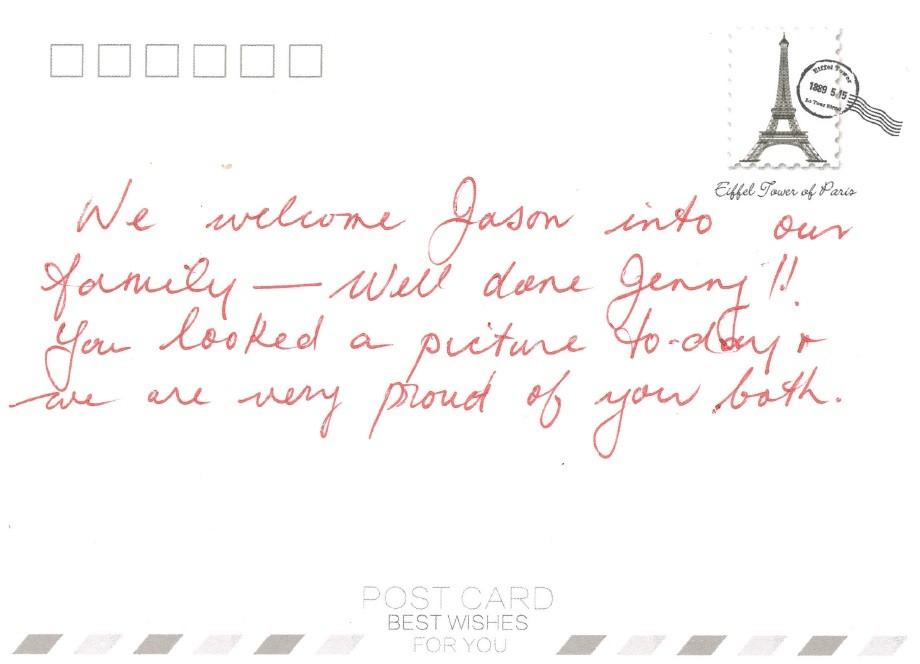 Eiffel Tower
1889 5.15
La Tour Eiffel
Eiffel Tower of Paris
We welcome Jason into our
family — Well done Jenny!!
You looked a picture to-day +
we are very proud of you both.
POST CARD
BEST WISHES
FOR YOU